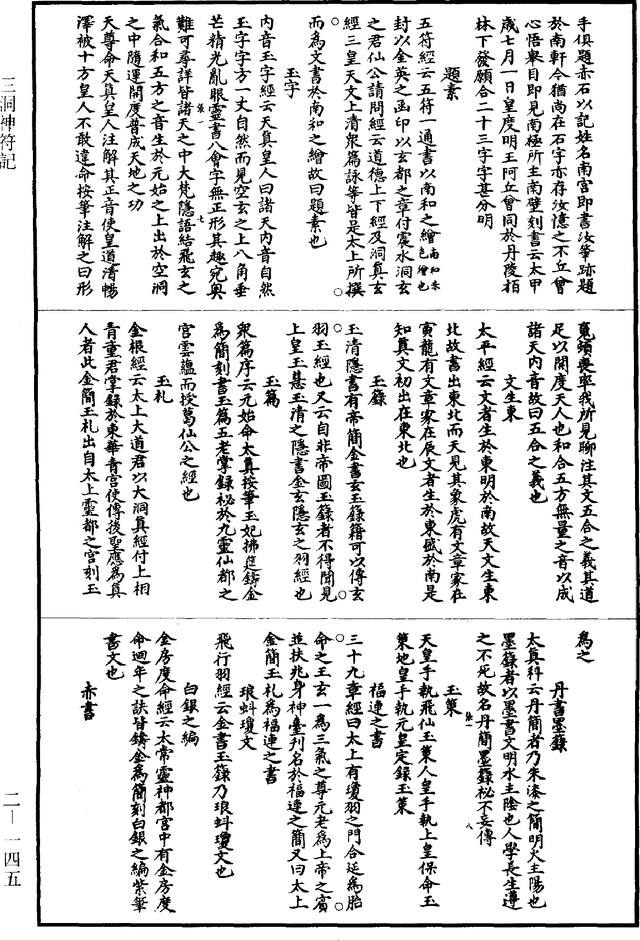 手俱題赤石以記姓名南宮即書汝筆跡題
於南軒令猶尚在石字亦存汝憶之不丘曾
心悟舉目即見南極所主南壁刻書云太甲
歲七月一日皇度明王阿丘曾同於丹陵柏
林下發願合二十三字字甚分明
題素
五符經云五符一通書以南和之繒南和朱色繒也
封以金英之函印以玄都之章付震水洞玄
之君仙公請問經云道德上下經及洞真玄
經三皇天文上清衆篇詠等皆是太上所撰
而爲文書於南和之繒故曰題素也
玉字
內音玉字經云天真皇人曰諸天內音自然
玉字字方一丈自然而見空玄之上八角垂
芒精光亂眼靈書八會字無正形其趣宛奧
難可尋詳皆諸天之中大梵隱語結飛玄之
氣合和五方之音生於元始之上出於空洞
之中隨運開度普成天地之功
天尊命天真皇人注解其正音使皇道清暢
澤被十方皇人不敢違命按筆注解之曰形
魂頓喪率我所見聊注其文五合之義其道
足以開度天人也和合五方無量之音以成
諸天內音故曰五合之義也
文生東
太平經云文者生於東明於南故天文生東
北故書出東北而天見其象虎有文章家在
寅龍有文章家在辰文者生於東盛於南是
知真文初出在東北也
玉籙
玉清隱書有帝簡金書玄玉籙籍可以傳玄
羽玉經也又云自非帝圖玉籙者不得聞見
上皇玉慧玉清之隱書金玄隱玄之羽經也
玉篇
衆篇序云元始命太真按筆玉妃拂筵鑄金
爲簡刻書玉篇五老掌錄祕於九靈仙都之
宮雲蘊而授葛仙公之經也
玉札
金根經云太上大道君以大洞真經付上相
青童君掌錄於東華青宮使傳後聖應爲真
人者此金簡玉札出自太上靈都之宮刻玉
爲之
丹書墨籙
太真科云丹簡者乃朱漆之簡明火主陽也
墨籙者以墨書文明水主陰也人學長生遵
之不死故名丹簡墨籙祕不妄傳
玉策
天皇手執飛仙玉策人皇手執上皇保命玉
策地皇手執元皇定錄玉策
福連之書
三十九章經曰太上有瓊羽之門合延爲胎
命之王玄一爲三氣之尊元老爲上帝之賓
並扶兆身神臺刊名於福連之簡又曰太上
金簡玉札爲福連之書
琅虯瓊文
飛行羽經云金書玉籙乃琅虯瓊文也
白銀之編
金房度命經云太常靈神都宮中有金房度
命迴年之訣皆鑄金爲簡刻白銀之編紫筆
書文也
赤書
三洞神符記
二—一四五